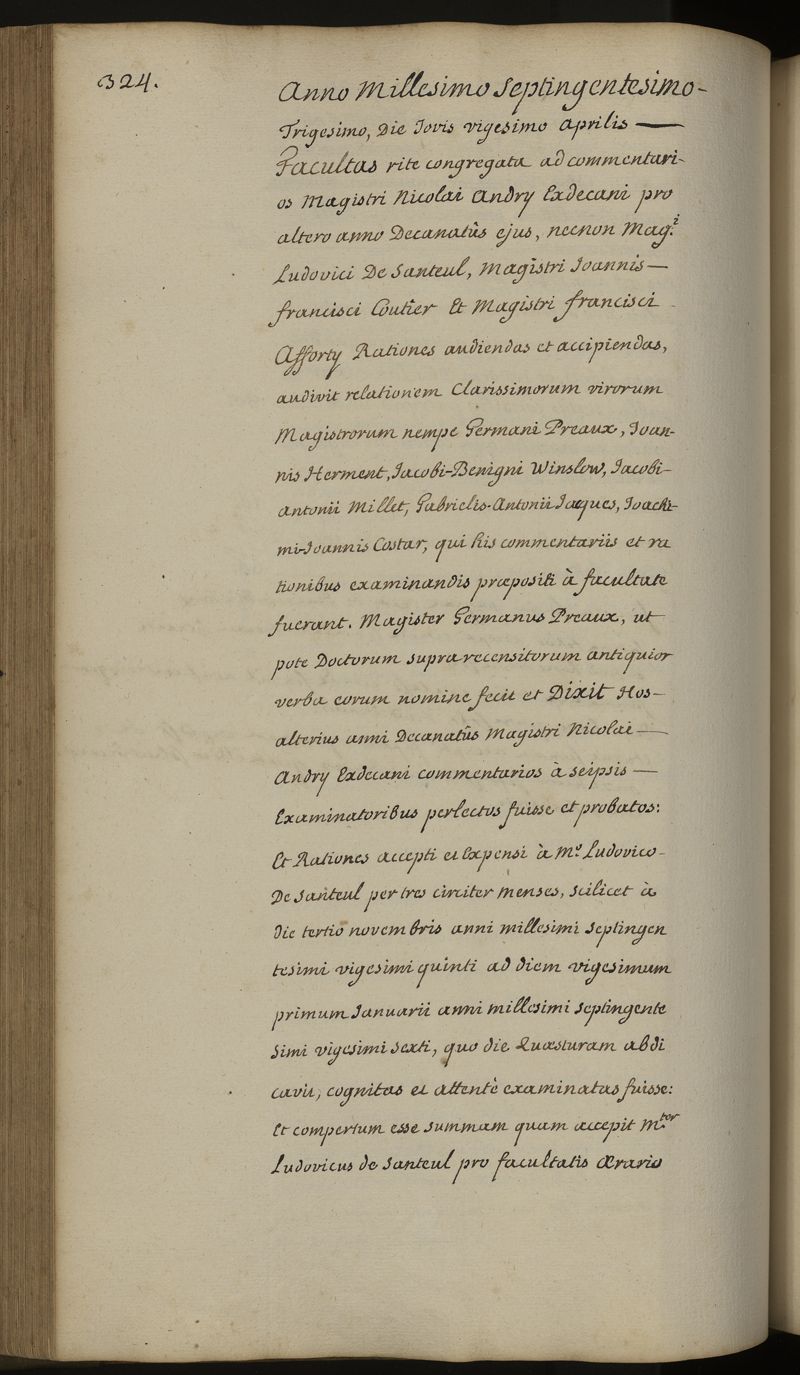 324.
Anno Millesimo Septingentesimo-
Trigesimo, Die Jovis vigesimo Aprilis —
Facultas rite congregata ad commentari-
os Magistri Nicolai Andry Exdecani pro
altero anno Decanatûs ejus, necnon Mag.i
Ludovici De Santeul, Magistri Joannis—
francisci Coutier Et Magistri francisci
Afforty Rationes audiendas et accipiendas,
audivit relationem Clarissimorum virorum
Magistrorum nempe Germani Preaux, Joan-
nis Herment, Jacobi-Benigni Winslow, Jacobi-
antonii Millet, Gabrielis-Antonii Jacques, Joachi-
mi-Joannis Costar, qui his commentariis et ra
tionibus examinandis præpositi à facultate
fuerant. Magister Germanus Preaux, ut
pote Doctorum supra recensitorum antiquior
verba eorum nomine fecit et Dixit Hos—
alterius anni Decanatûs Magistri Nicolai —
Andry Exdecani commentarios à seipsis —
Examinatoribus perlectos fuisse et probatos:
Et Rationes accepti et Expensi à M.o Ludovico-
De Santeul per tres circiter menses, scilicet à
die tertio novembris anni millesimi septingen
tesimi vigesimi quinti ad diem vigesimum
primum Januarii anni millesimi septingente
simi vigesimi sexti, quo die Quæsturam abdi
cavit, cognitas et attentè examinatas fuisse:
Et compertum esse summam quam accepit M.tor
Ludovicus de Santeul pro facultatis Ærario